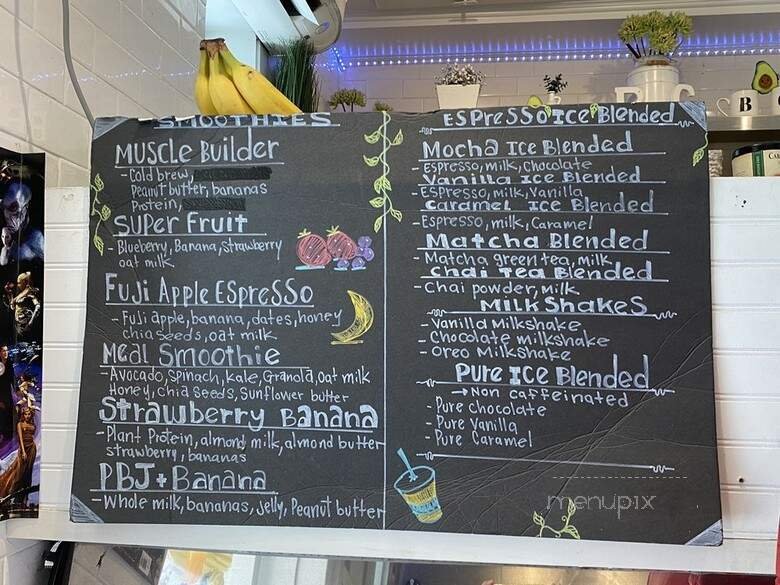 SMOOTHIES
MUSCLE Builder
-Cold brew,
Peanut butter, bananas
Protein,
Super Fruit
-Blueberry, Banana, strawberry
oat milk
Fuji Apple Espresso
- Fuji apple, banana, dates, honey
chia seeds, oat milk
Meal Smoothie
-Avocado, spinach, kale, Granola, oat milk
Honey, chia seeds, sunflower butter
Strawberry Banana
-Plant Protein, almond milk, almond butter
strawberry, bananas
PBJ + Banana
-Whole milk, bananas, Jelly, Peanut butter
Espresso Ice Blended
Mocha Ice Blended
-Espresso, milk, chocolate
Vanilla Ice Blended
-Espresso, milk, Vanilla
Caramel Ice Blended
-Espresso, milk, Caramel
Matcha Blended
-Matcha green tea, milk
Chai Tea Blended
-Chai powder, milk
MilkShakes
-Vanilla Milkshake
-Chocolate milkshake
-Oreo Milkshake
Pure Ice Blended
→Non caffeinated
-Pure chocolate
-Pure Vanilla
-Pure Caramel
menupix
B